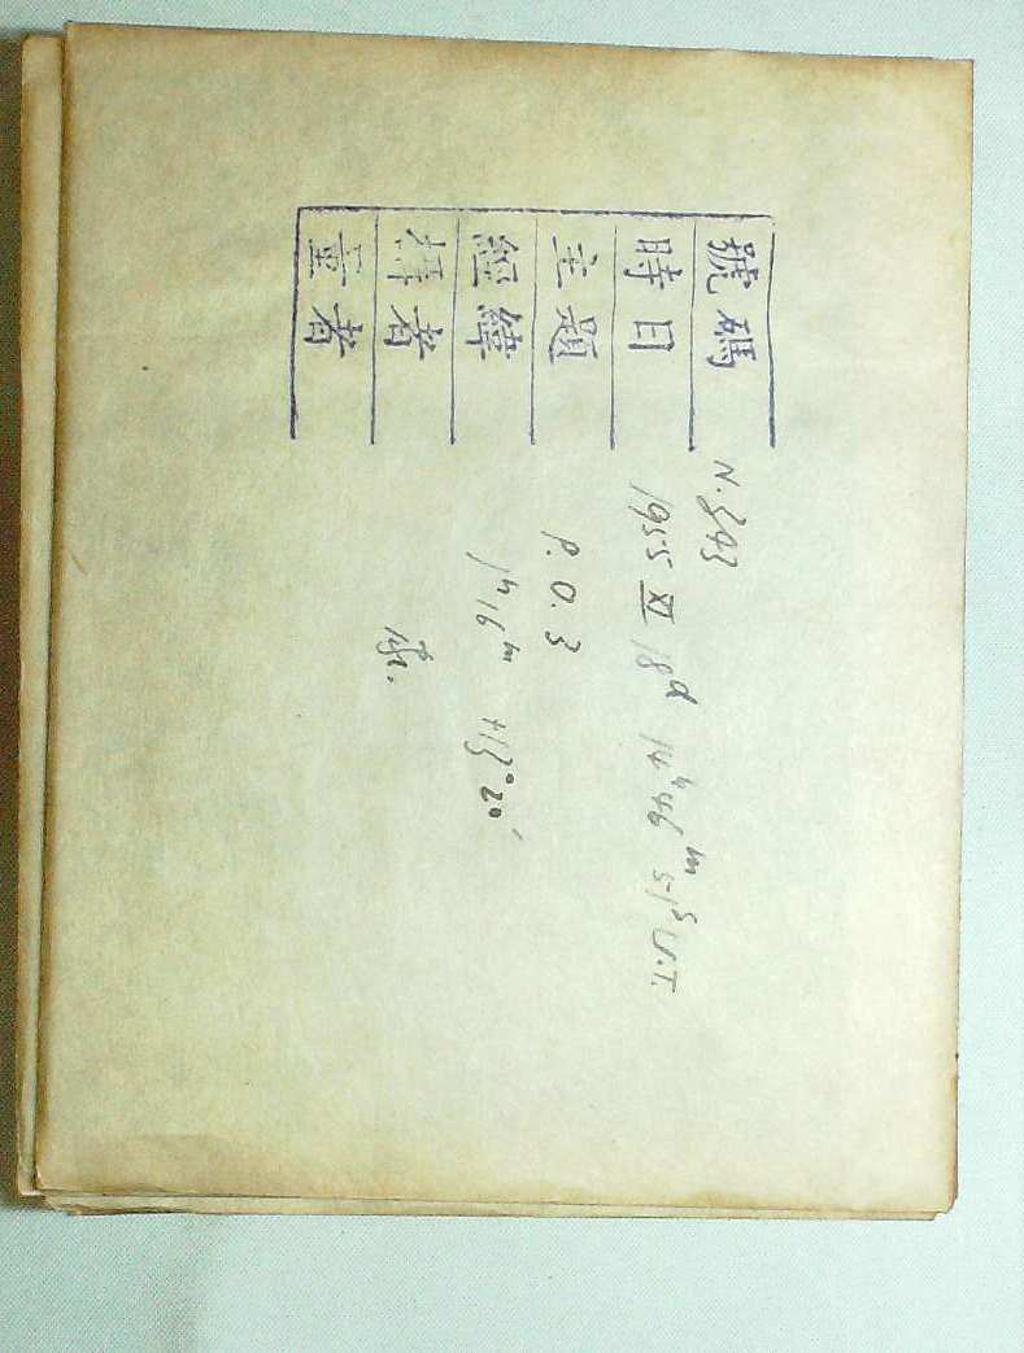 號碼 N. 843
時日 1955 XI 18d 14h 46m 51s U.T.
主題 P. O. 3
經緯 1h 16m +13° 20′
擇者
量者